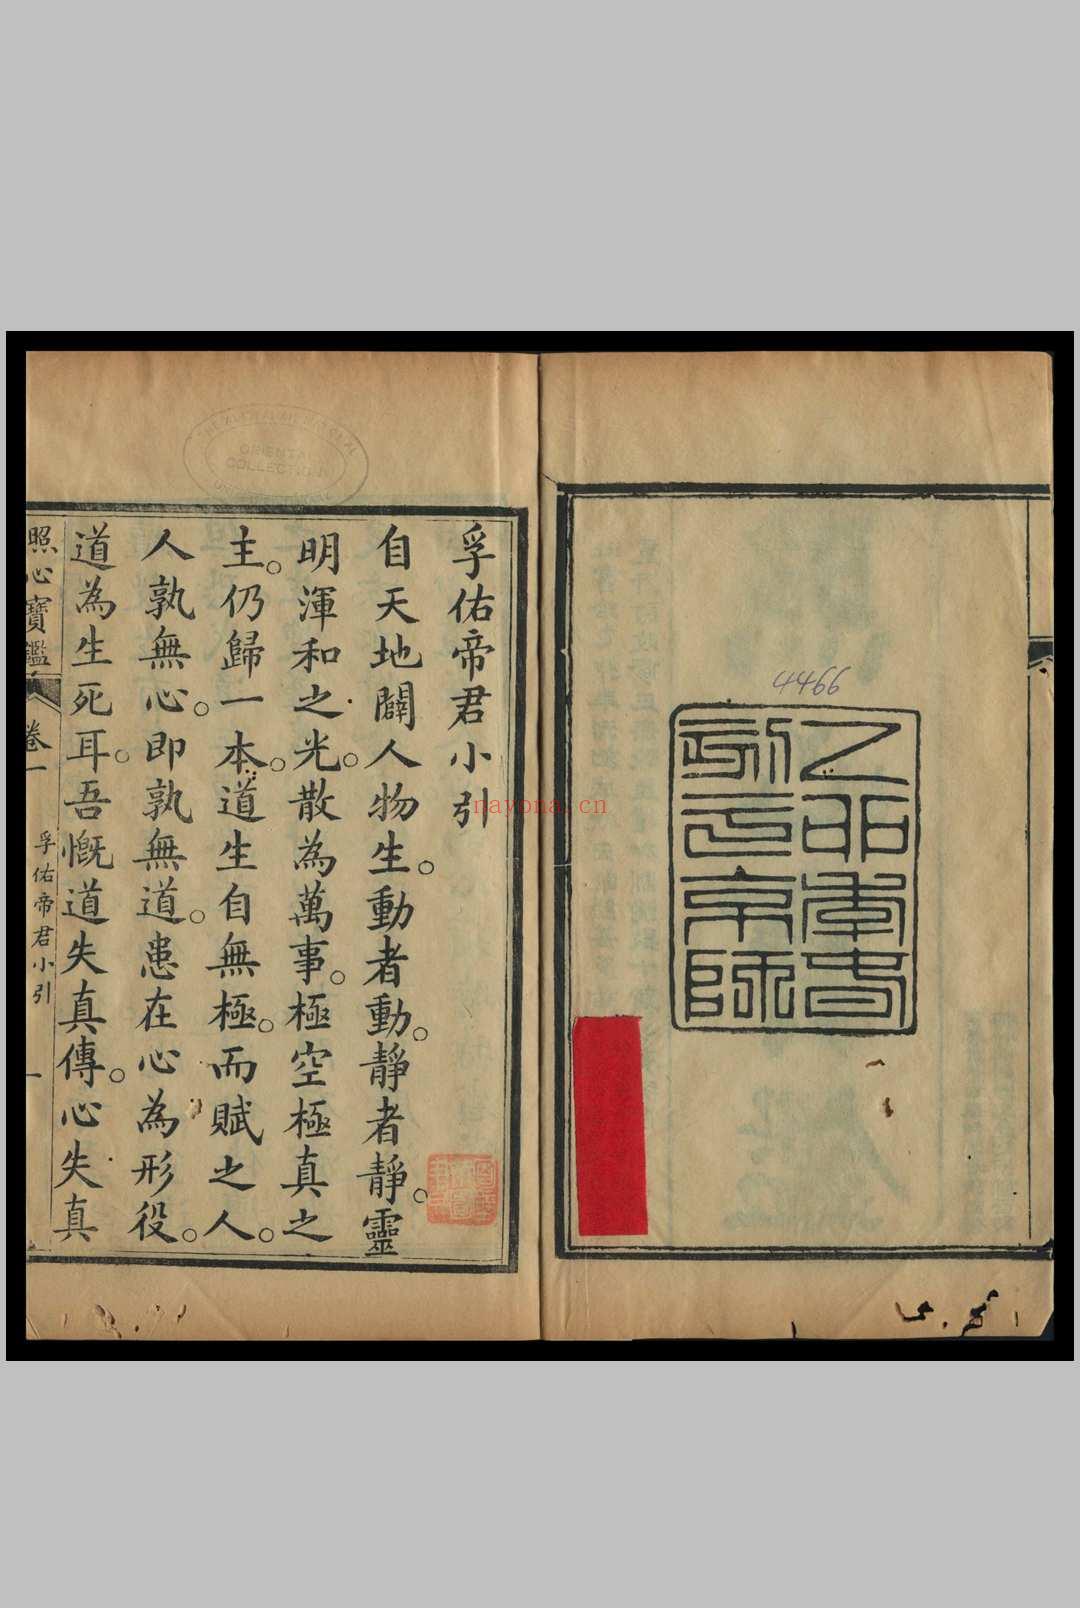 4466
孚佑帝君小引
自天地闢人物生。動者動。靜者靜。靈
明渾和之光。散為萬事。極空極真之
主。仍歸一本。道生自無極。而賦之人。
人孰無心。即孰無道。患在心為形役。
道為生死耳。吾慨道失真傳。心失真
照心寶鑑
卷一
孚佑帝君小引
一
nayona.cn
ORIENTAL
COLLECTION